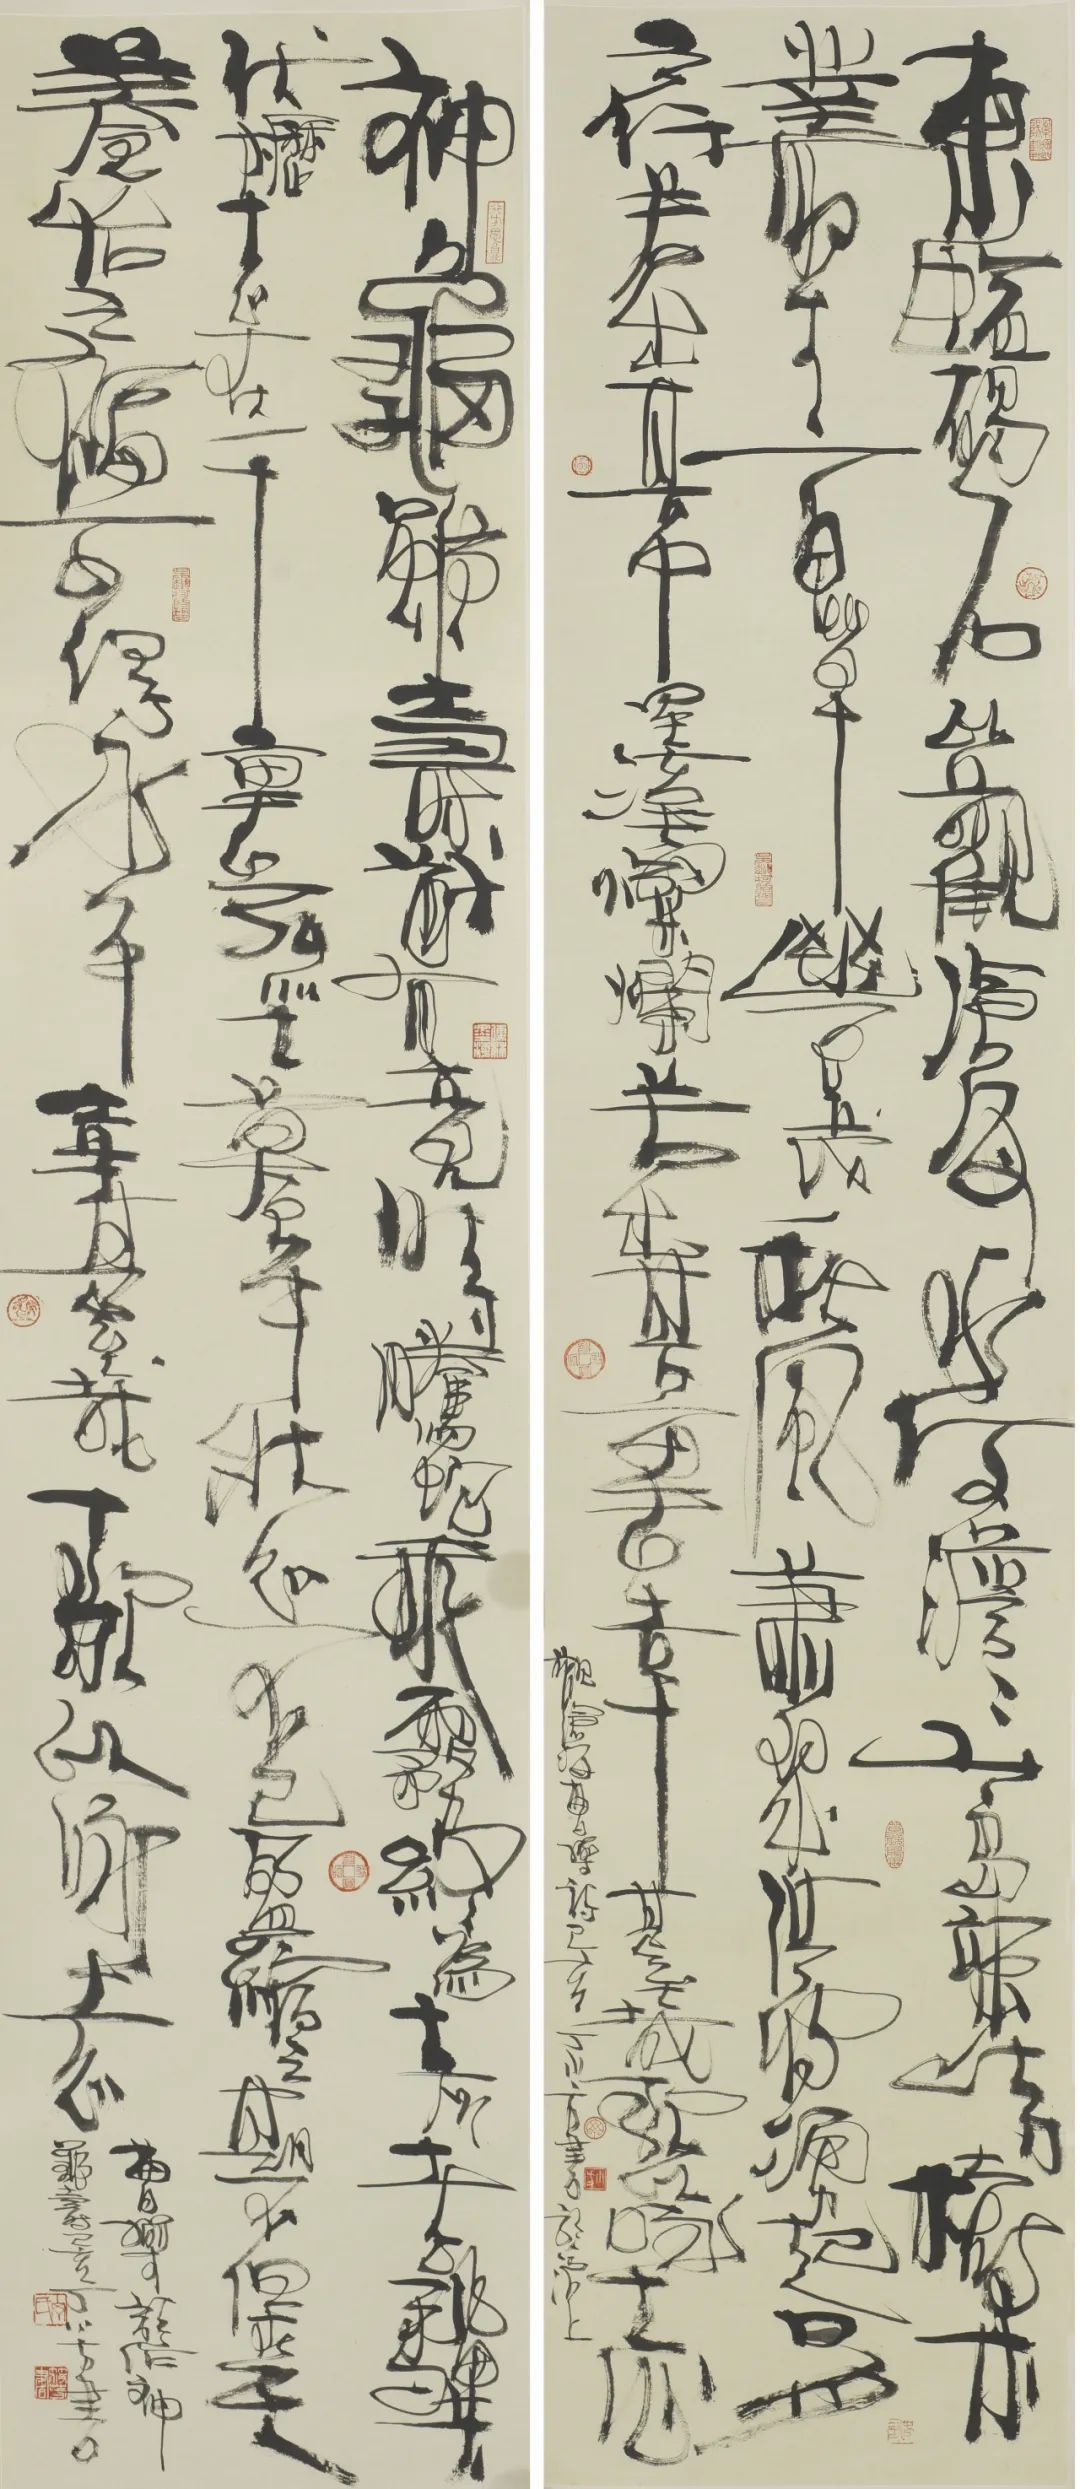 東臨碣石以觀滄海水何澹澹山島竦峙樹木
叢生百草豐茂秋風蕭瑟洪波湧起日月之
行若出其中星漢燦爛若出其裏幸甚至哉歌以詠志
觀滄海曹操詩
神龜雖壽猶有竟時騰蛇乘霧終為土灰老驥
伏櫪志在千里烈士暮年壯心不已盈縮之期不但在天
養怡之福可得永年幸甚至哉歌以詠志
曹操詩神
龜雖壽